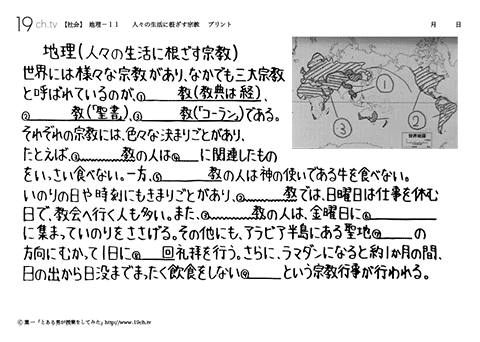 19ch.tv 【社会】 地理－11 人々の生活に根ざす宗教 プリント 月 日
地理(人々の生活に根ざす宗教)
世界には様々な宗教があり、なかでも三大宗教
と呼ばれているのが、① 教(教典は経)、
② 教(「聖書」)、③ 教(「コーラン」)である。
それぞれの宗教には、色々な決まりごとがあり、
たとえば、 教の人は に関連したもの
をいっさい食べない。一方、 教の人は神の使いである牛を食べない。
いのりの日や時刻にもきまりごとがあり、 教では、日曜日は仕事を休む
日で、教会へ行く人も多い。また、 教の人は、金曜日に
に集まっていのりをささげる。その他にも、アラビア半島にある聖地 の
方向にむかって1日に 回礼拝を行う。さらに、ラマダンになると約1か月の間、
日の出から日没までまったく飲食をしない という宗教行事が行われる。
①
②
③
世界地図
© 葉一「とある男が授業をしてみた」http://www.19ch.tv